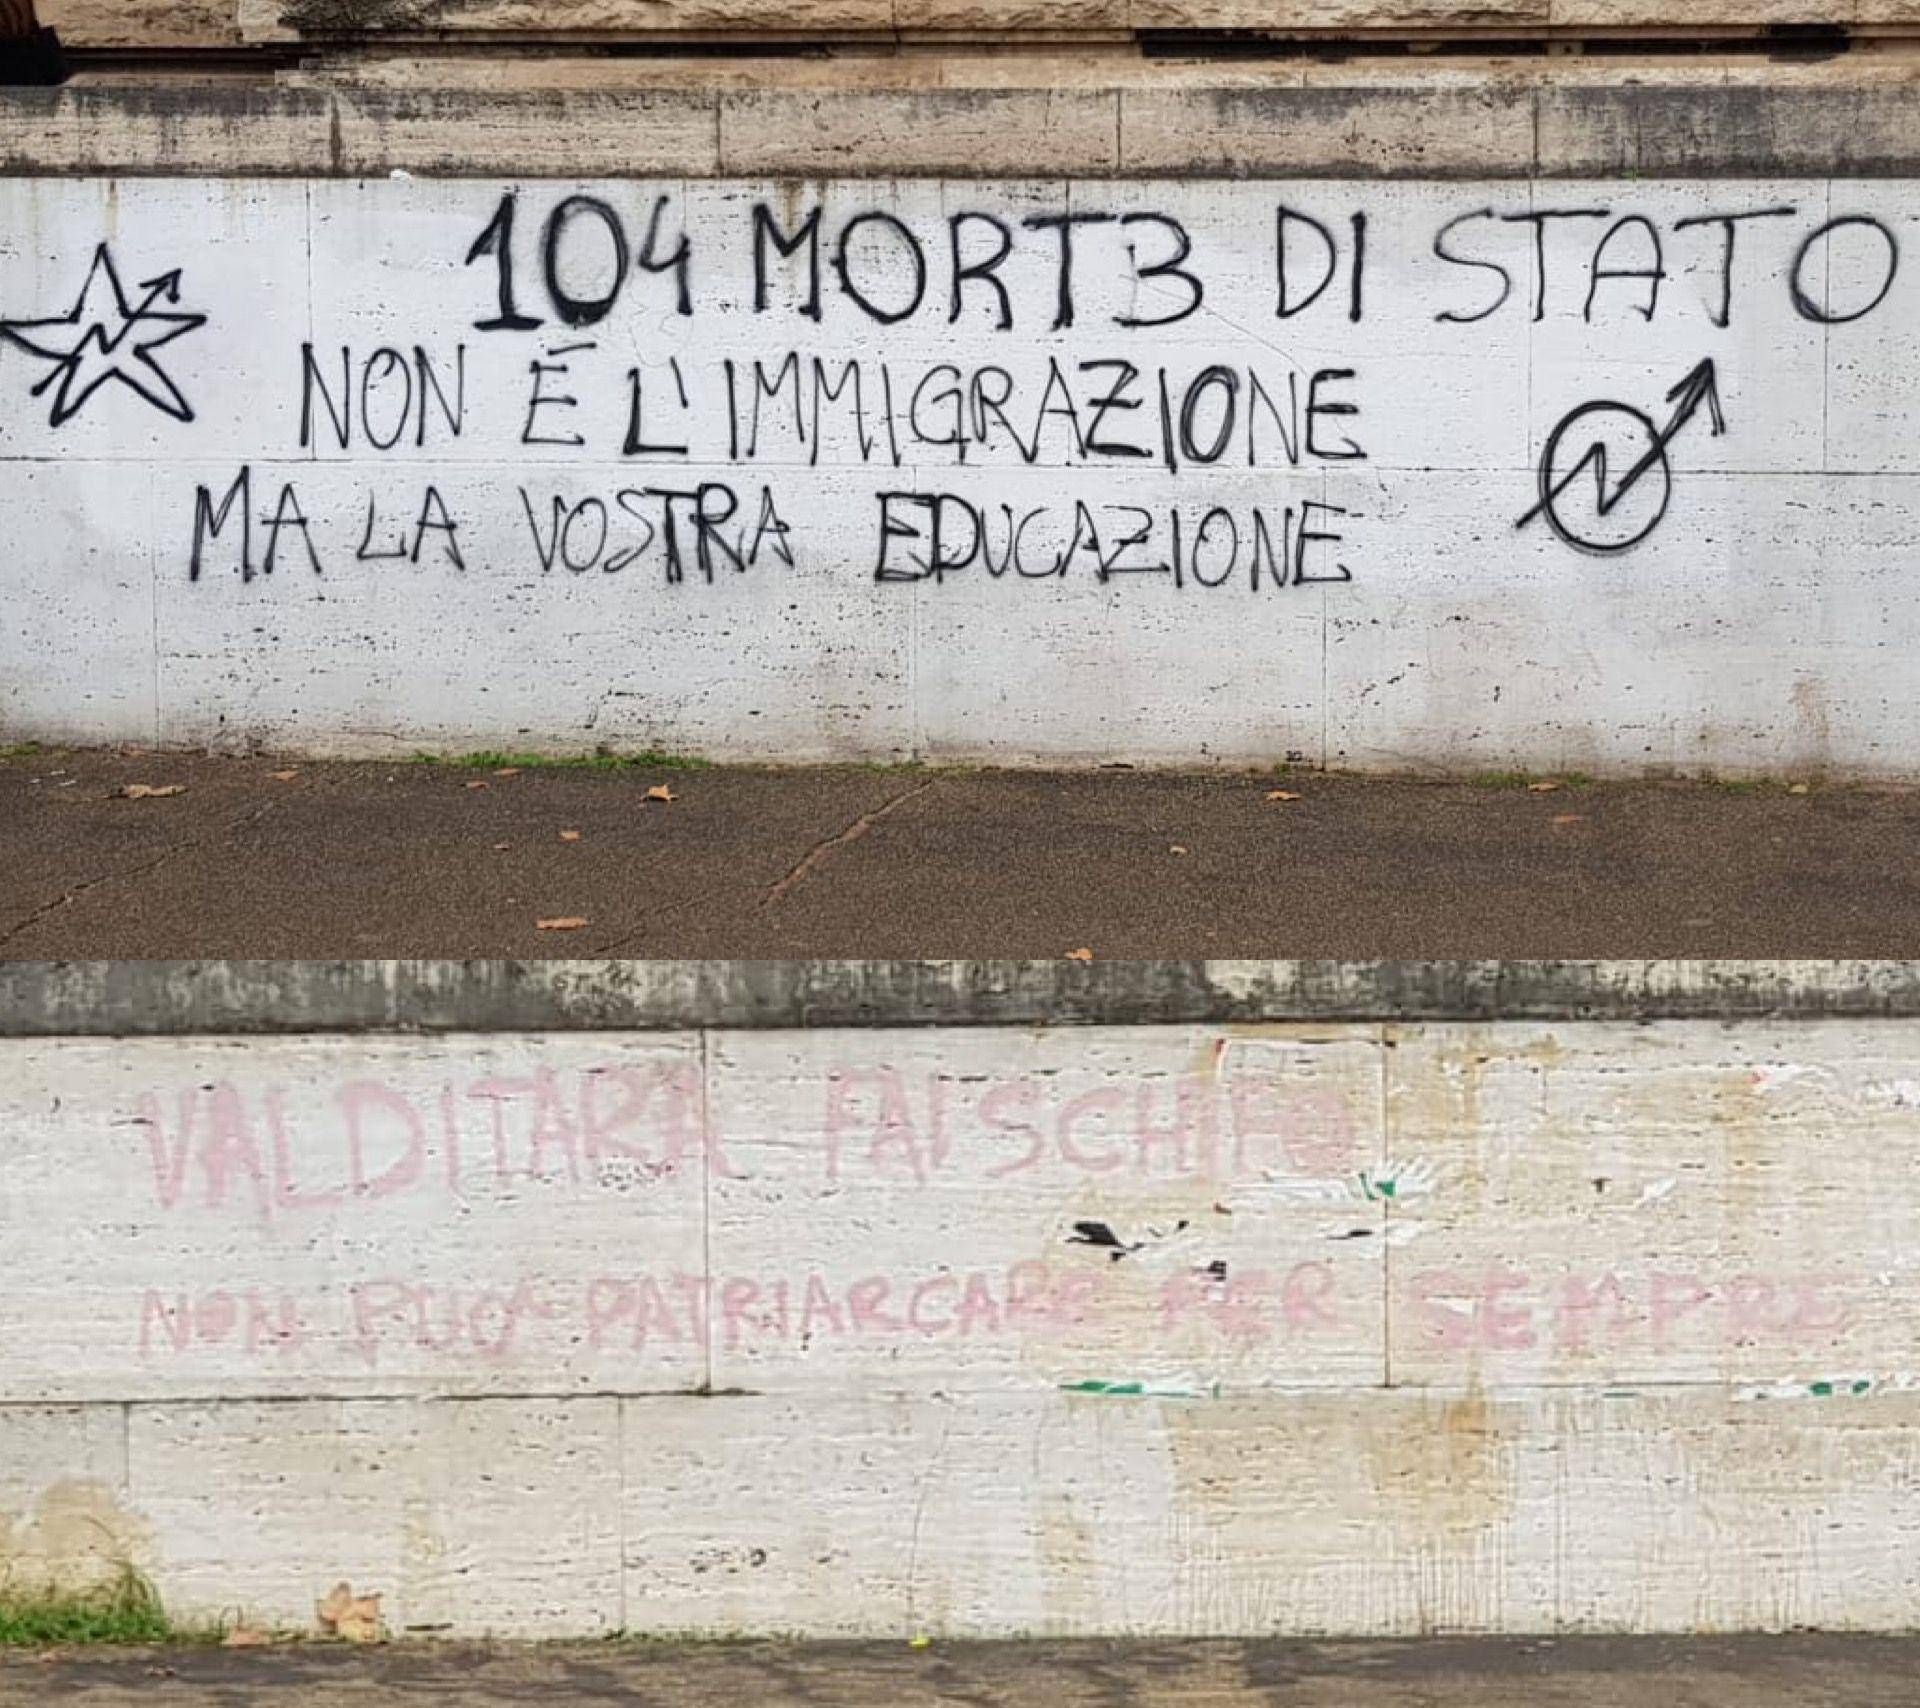 104 MORT3 DI STATO
NON É L'IMMIGRAZIONE
MA LA VOSTRA EDUCAZIONE
VALDITARA FAI SCHIFO
NON PUO' PATRIARCARE PER SEMPRE